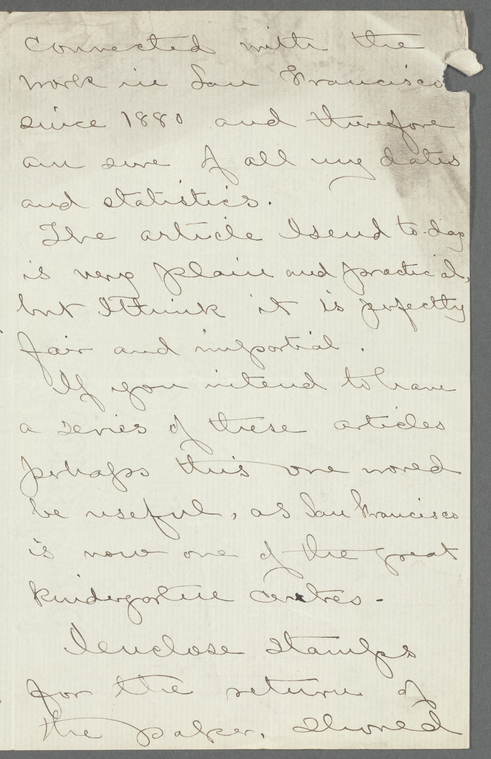 connected with the
work in San Francisco
since 1880 and therefore
am sure of all my dates
and statistics.
The article I send to-day
is very plain and practical,
but I think it is perfectly
fair and impartial.
If you intend to have
a series of these articles
perhaps this one would
be useful, as San Francisco
is now one of the great
kindergarten centres -
I enclose stamps
for the return of
the paper, should